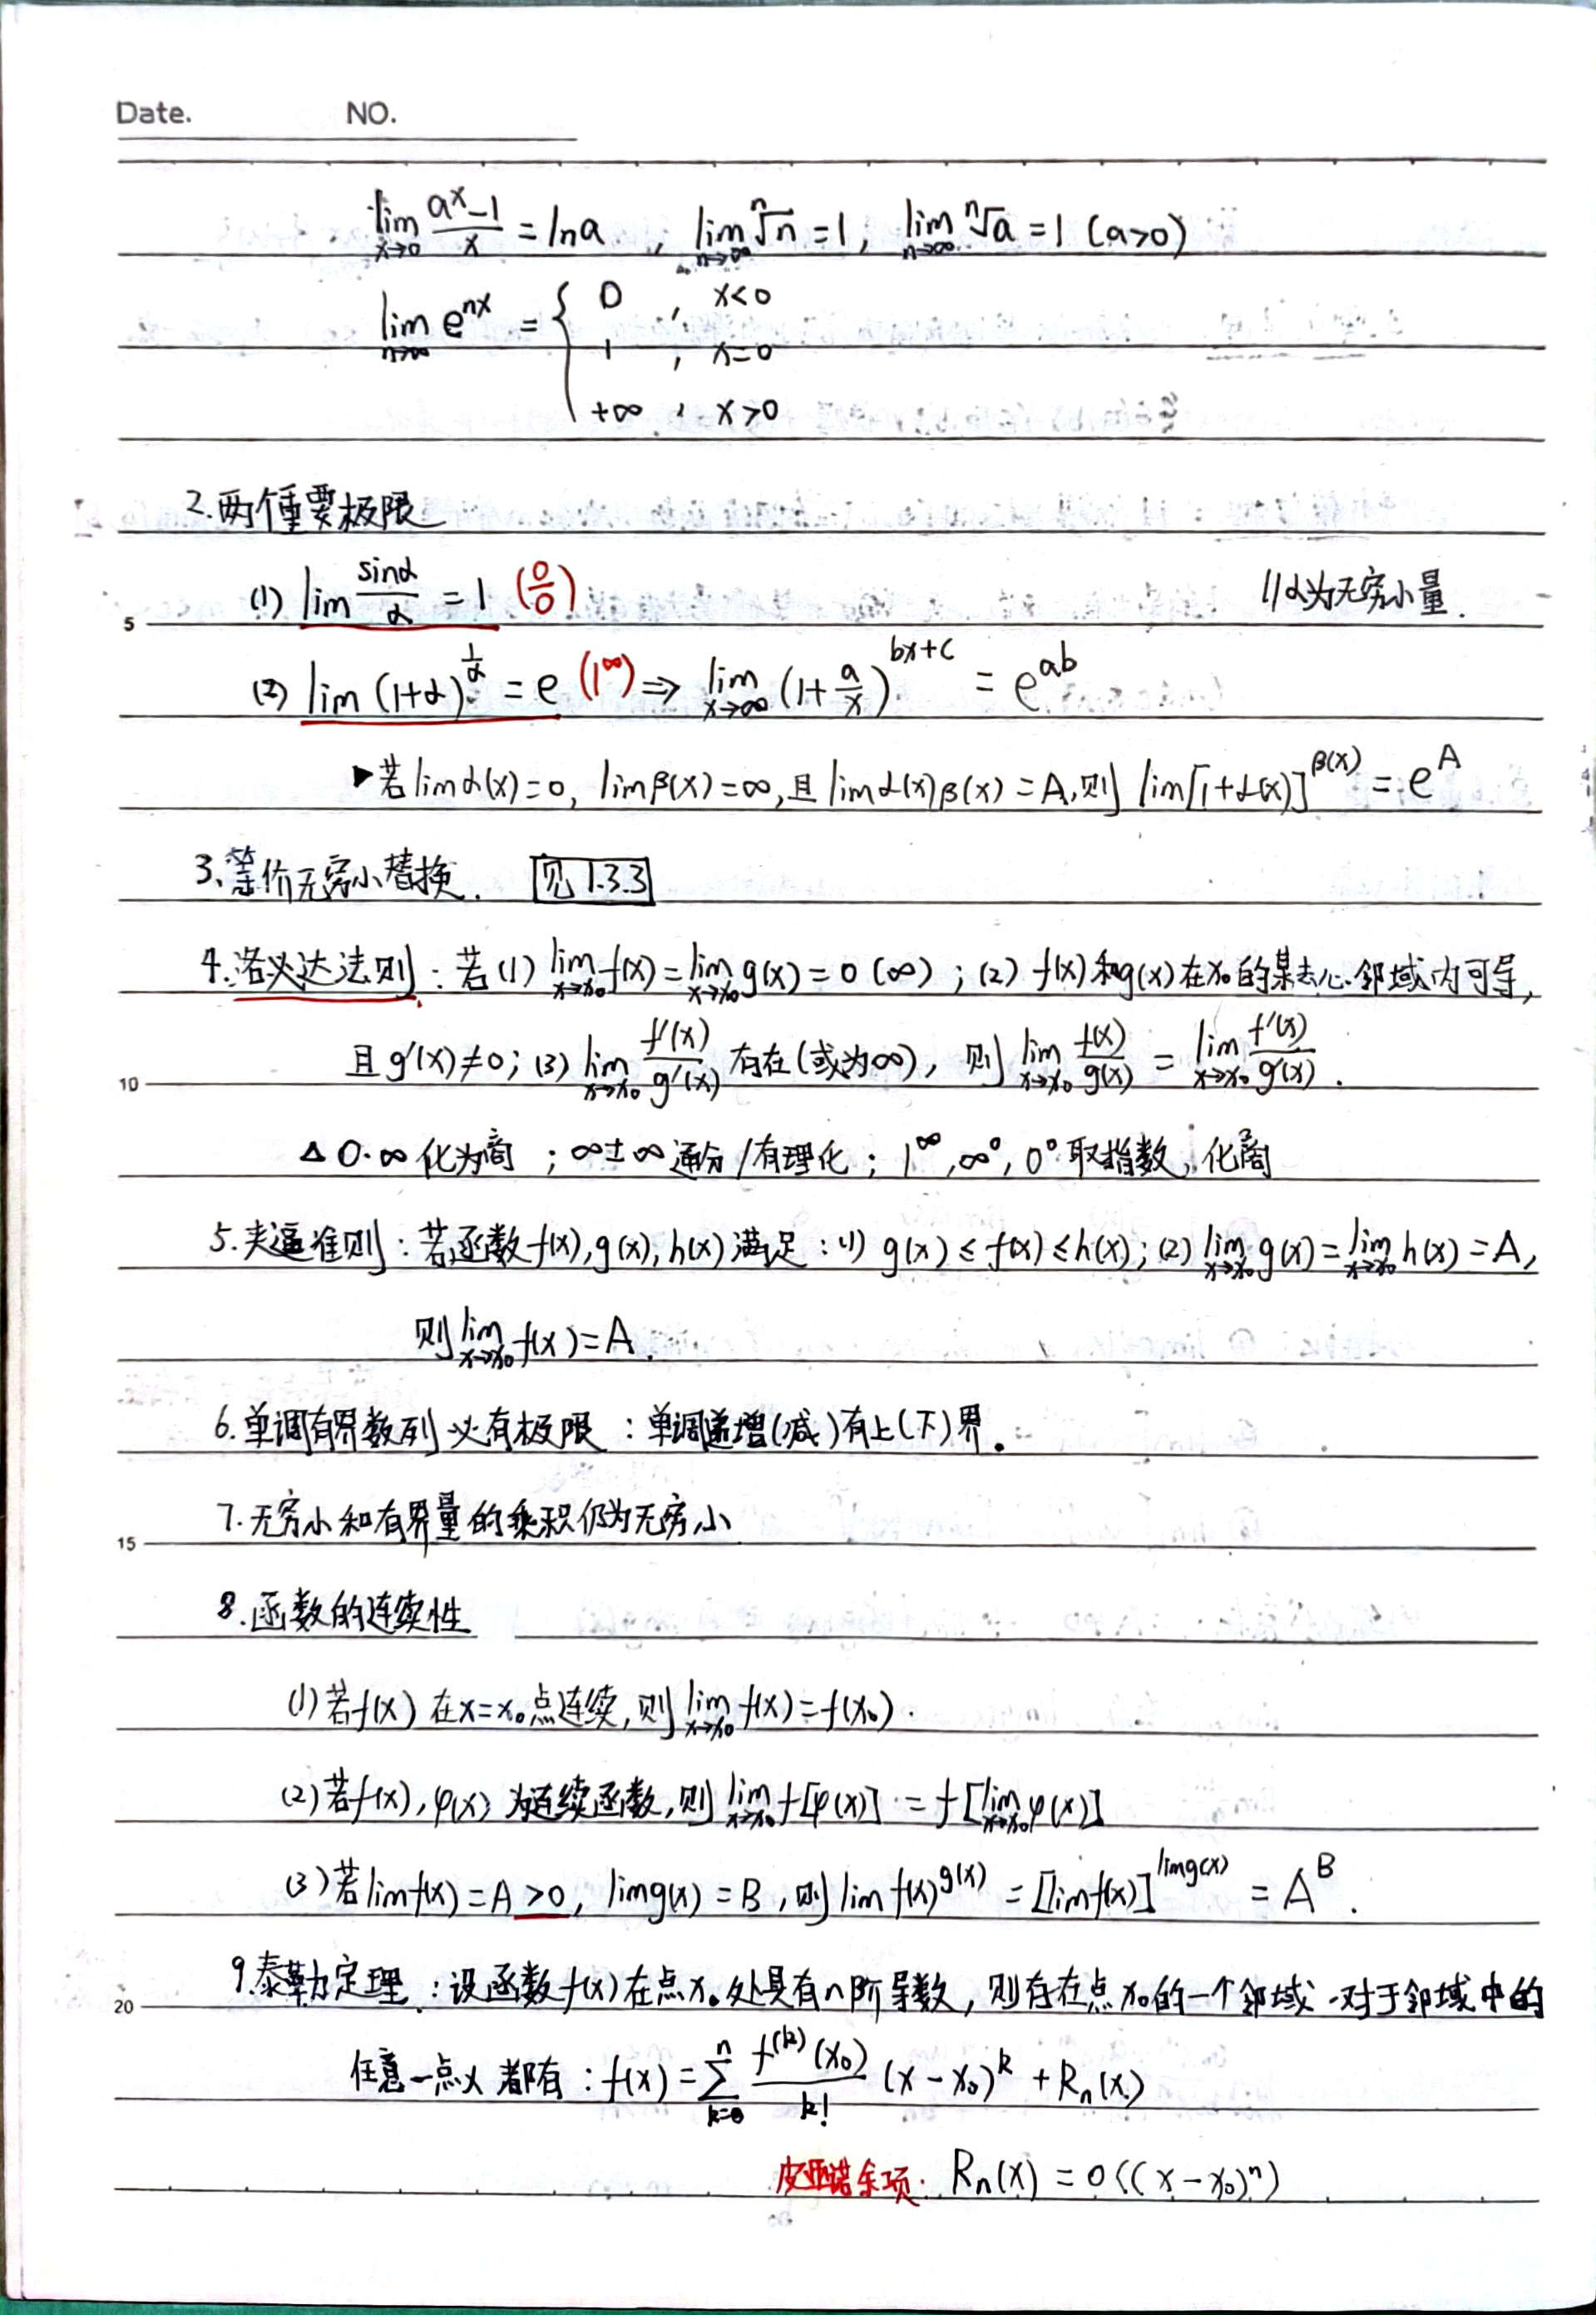 Date. NO.
lim_{x→0} (a^x-1)/x = lna , lim_{n→∞} ⁿ√n = 1, lim_{n→∞} ⁿ√a = 1 (a>0)
lim_{n→∞} e^{nx} = { 0 , x<0
1 , x=0
+∞ , x>0
2.两个重要极限
(1) lim sinα/α = 1 (0/0) //α为无穷小量.
5
(2) lim (1+α)^{1/α} = e (1^∞) ⇒ lim_{x→∞} (1+a/x)^{bx+c} = e^{ab}
▶若limα(x)=0, limβ(x)=∞,且limα(x)β(x)=A,则 lim[1+α(x)]^{β(x)} = e^A
3.等价无穷小替换. 见1.3.3
4.洛必达法则:若(1) lim_{x→x₀} f(x)=lim_{x→x₀} g(x)=0 (∞) ; (2) f(x)和g(x)在x₀的某去心邻域内可导,
且g'(x)≠0; (3) lim_{x→x₀} f'(x)/g'(x) 存在(或为∞), 则 lim_{x→x₀} f(x)/g(x) = lim_{x→x₀} f'(x)/g'(x) .
10
Δ 0·∞ 化为商 ; ∞±∞ 通分/有理化; 1^∞, ∞⁰, 0⁰ 取指数, 化商
5.夹逼准则:若函数f(x), g(x), h(x)满足:(1) g(x)≤f(x)≤h(x); (2) lim_{x→x₀} g(x)=lim_{x→x₀} h(x)=A,
则 lim_{x→x₀} f(x)=A.
6.单调有界数列必有极限 :单调递增(减)有上(下)界.
7.无穷小和有界量的乘积仍为无穷小
15
8.函数的连续性
(1)若f(x) 在x=x₀点连续,则 lim_{x→x₀} f(x)=f(x₀).
(2)若f(x), φ(x) 为连续函数,则 lim_{x→x₀} f[φ(x)] = f[lim_{x→x₀} φ(x)]
(3)若limf(x)=A>0, limg(x)=B,则lim f(x)^{g(x)} = [limf(x)]^{limg(x)} = A^B .
9.泰勒定理:设函数f(x)在点x₀处具有n阶导数,则存在点x₀的一个邻域,对于邻域中的
20
任意一点x 都有: f(x)=∑_{k=0}^{n} f^{(k)}(x₀)/k! (x-x₀)^k + Rₙ(x)
皮亚诺余项: Rₙ(x) = o((x-x₀)^n)